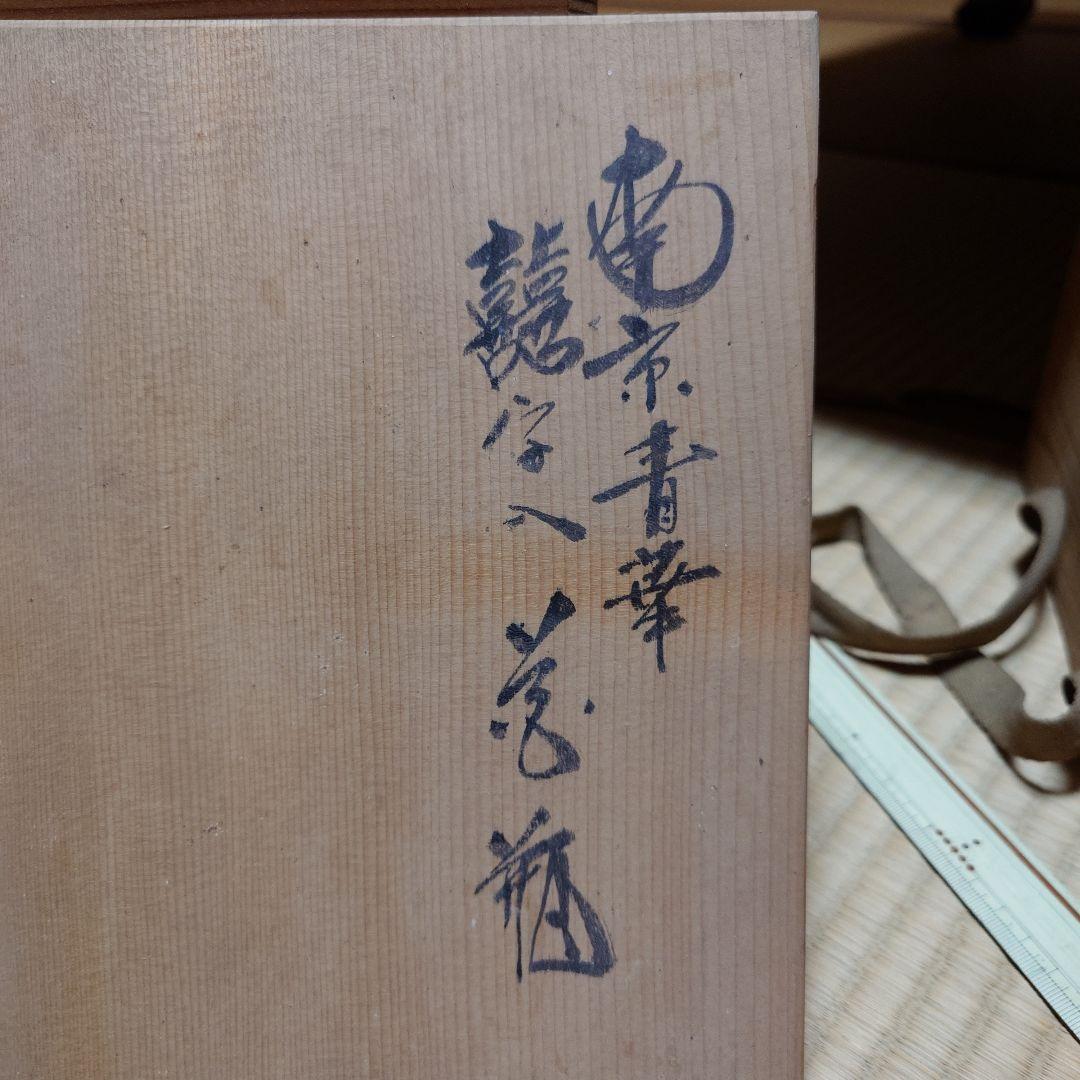 南京青華
囍字入花瓶